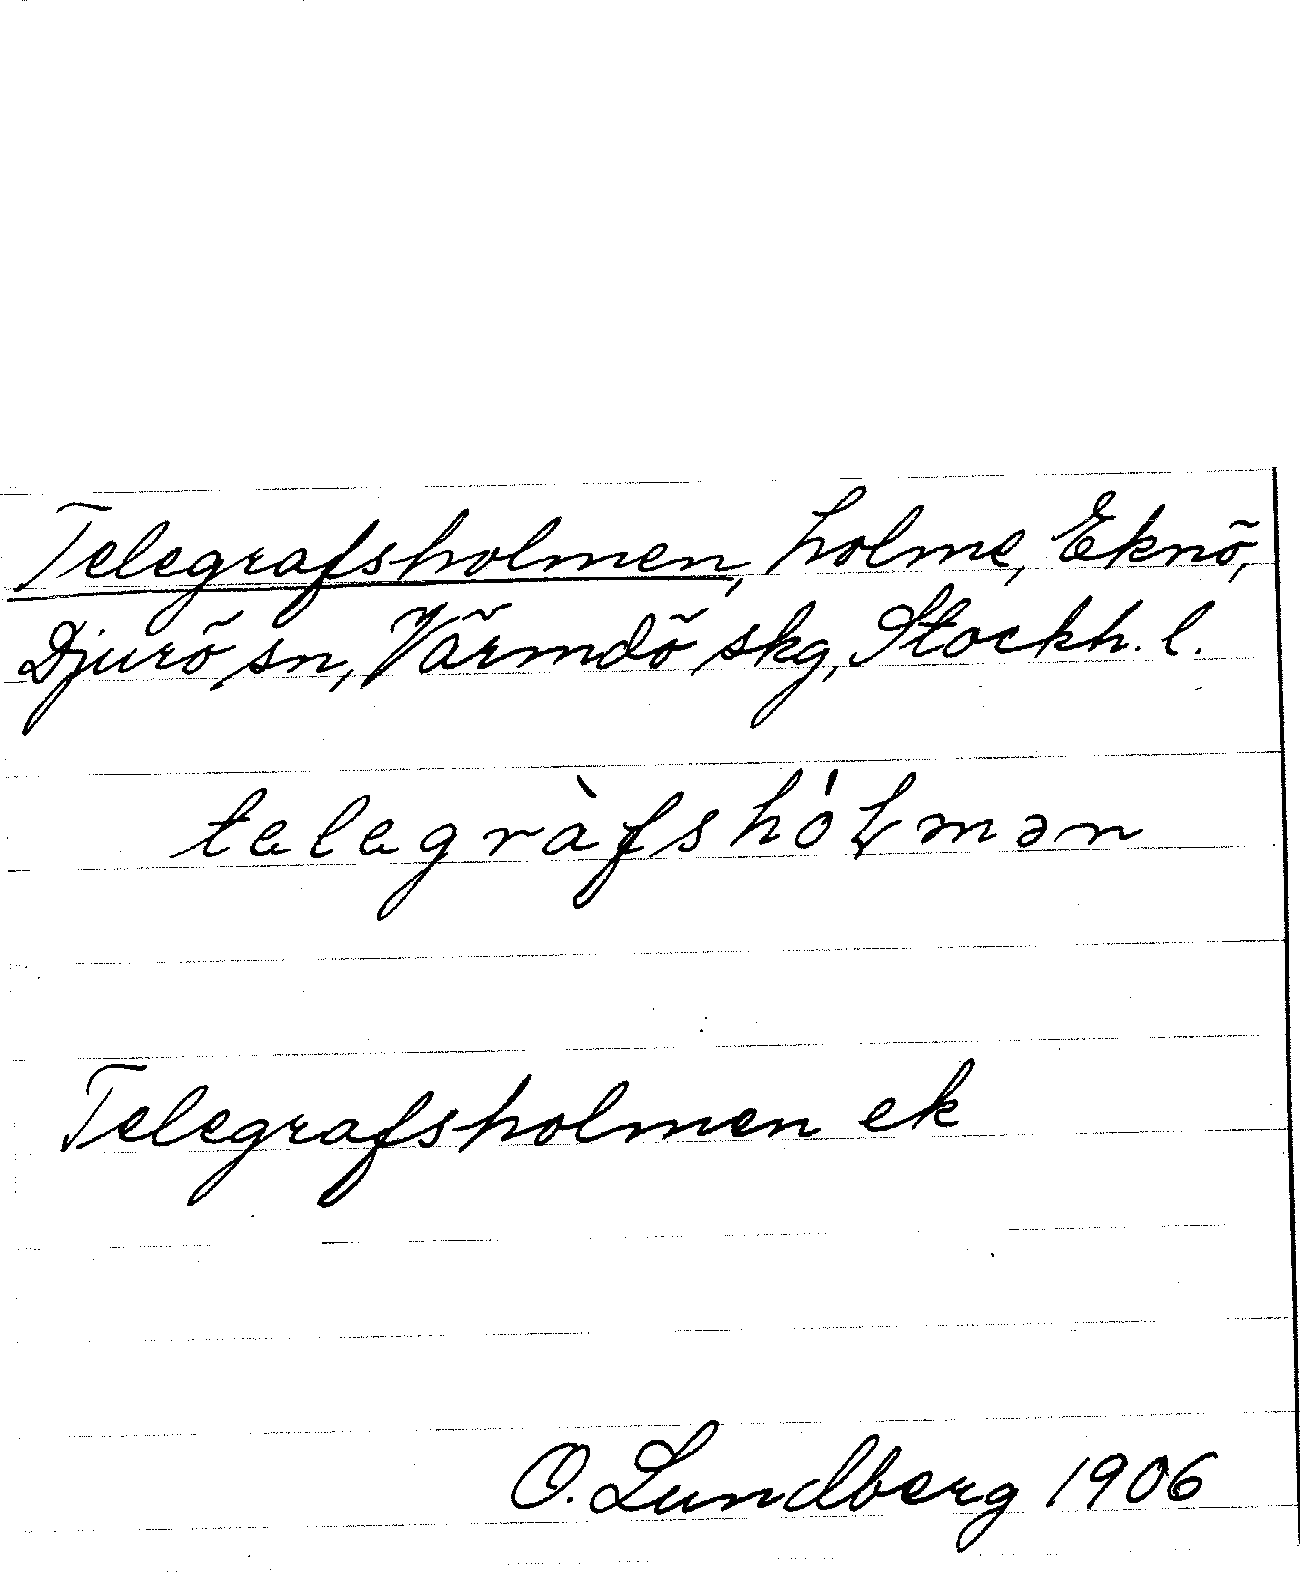 Telegrafsholmen, holme, Eknö,
Djurö sn, Värmdö skg, Stockh. l.
telegràfshóɫmən
Telegrafsholmen ek
O. Lundberg 1906